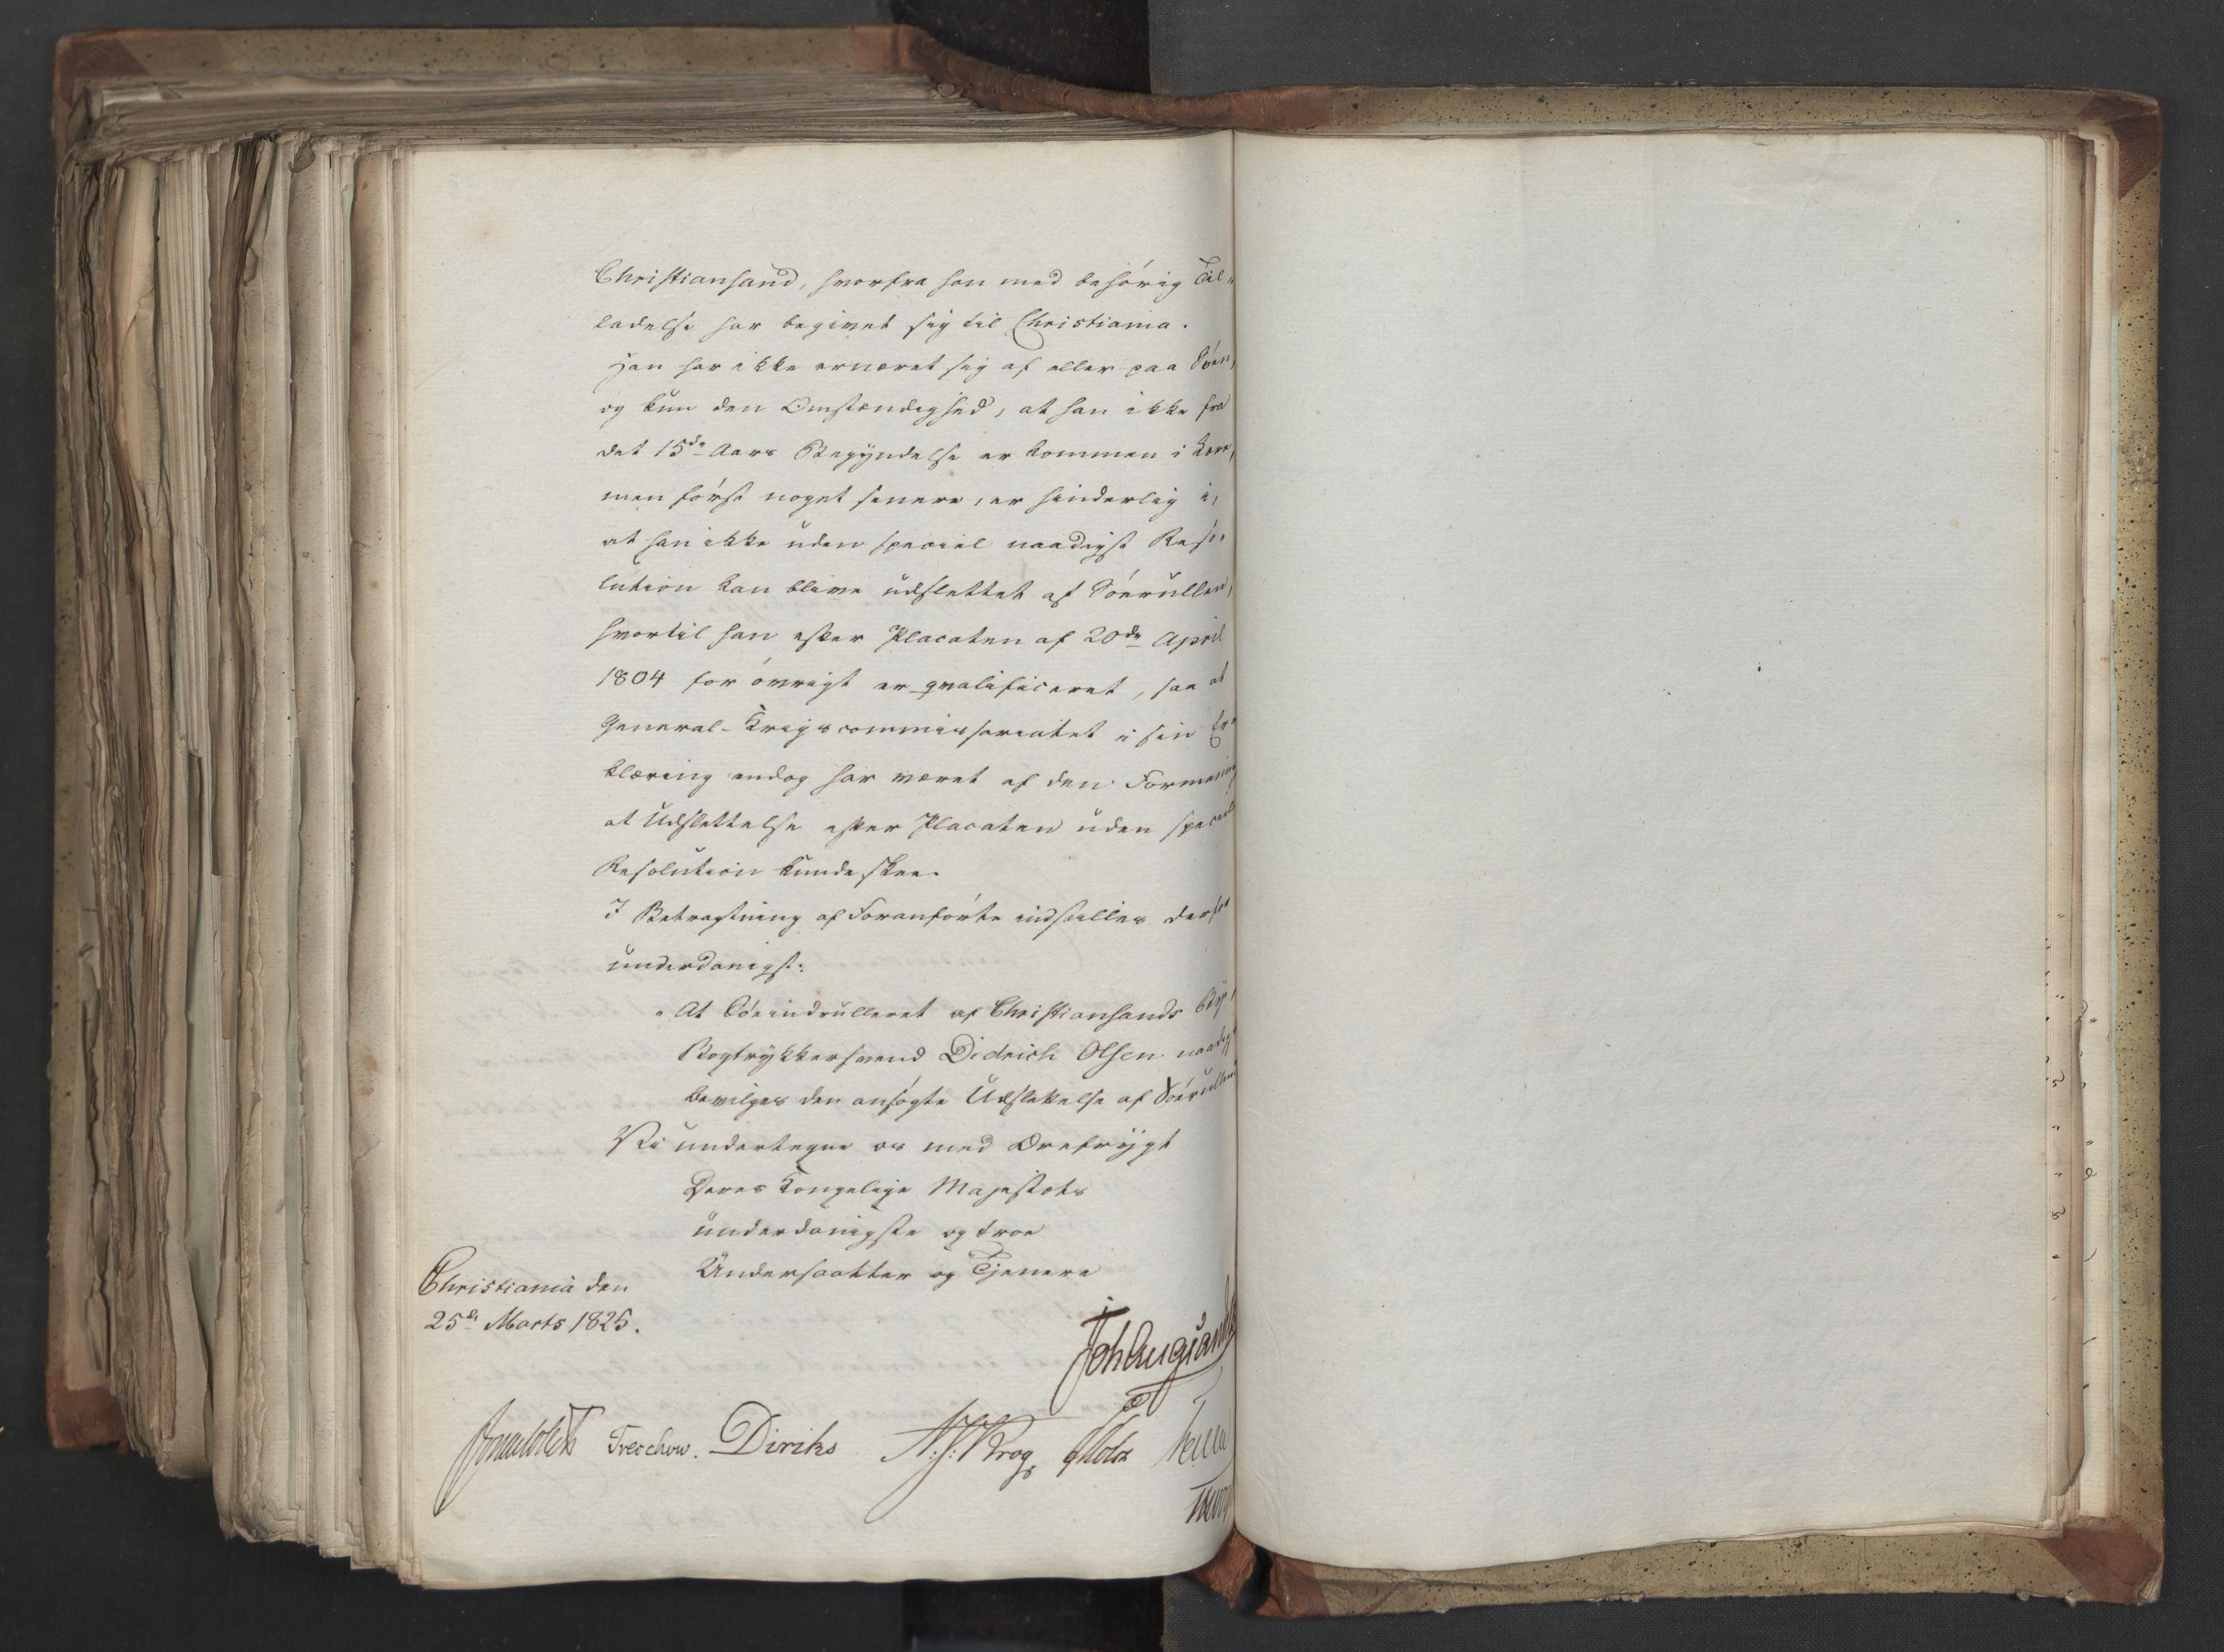 Christiansand, hvorfra han med behörig Til-
ladelse har begivet sig til Christiania.
Han har ikke ernæret sig af eller paa Söen,
og kun den Omstændighed, at han ikke fra
det 15de Aars Begyndelse er kommen i Lære,
men först noget senere, er hinderlig i,
at han ikke uden special naadigst Reso-
lution kan blive udslettet af Söerullen,
hvortil han efter Placaten af 20de April
1804 for övrigt er qvalificeret, saa at
General-Krigscommissariatet i sin Er-
klæring endog har været af den Formening
at Udslettelse efter Placaten uden special
Resolution kunde skee.
I Betragtning af Foranförte indstilles derfor
underdanigst:
"At Söeindrulleret af Christiansands Bye,
Bogtrykkersvend Didrich Olsen naadigst
bevilges den ansögte Udslettelse af Söerullen
Vi undertegne os med Ærefrygt
Deres Kongelige Majestæts
underdanigste og troe
Undersaatter og Tjenere
Christiania den
25de Marts 1825.
Joh Aug Sandels
Treschow. Diriks Krog Holst